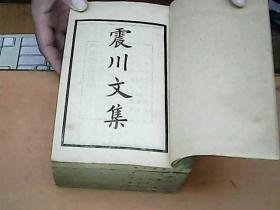 震川文集